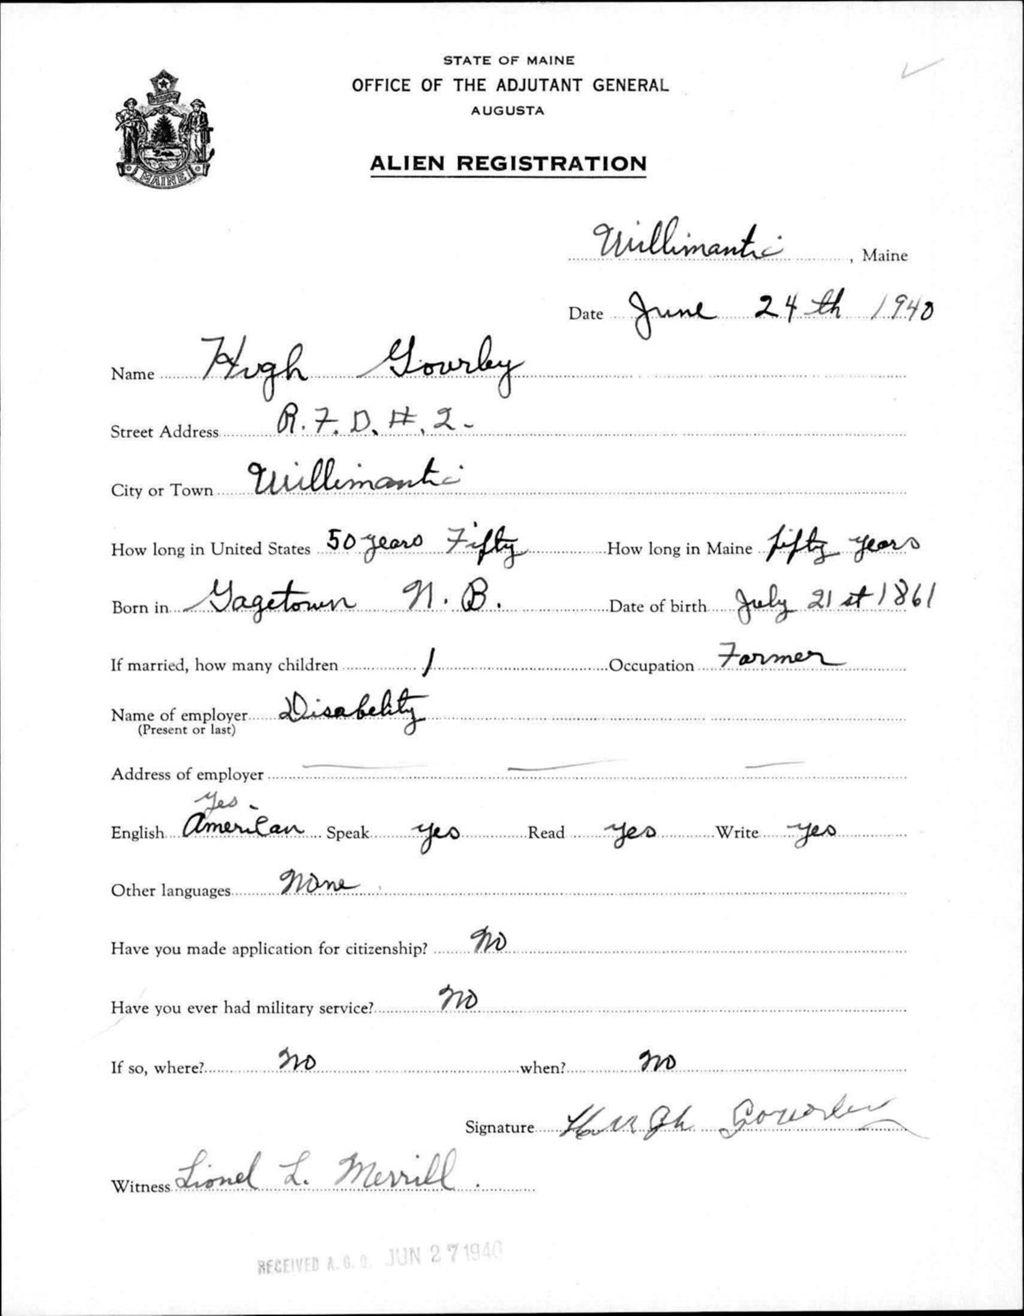 STATE OF MAINE
OFFICE OF THE ADJUTANT GENERAL
AUGUSTA
ALIEN REGISTRATION
MAINE
Willimantic, Maine
Date June 24th 1940
Name Hugh Gourley
Street Address R.F.D. #. 2-
City or Town Willimantic
How long in United States 50 years Fifty How long in Maine fifty years
Born in Gagetown N. B. Date of birth July 21st 1861
If married, how many children 1 Occupation Farmer
Name of employer Disabelity
(Present or last)
Address of employer
Yes -
English American Speak yes Read yes Write yes
Other languages None
Have you made application for citizenship? No
Have you ever had military service? No
If so, where? No when? No
Signature Hugh Gourley
Witness Lionel L. Merrill.
RECEIVED A.G.O. JUN 27 1940